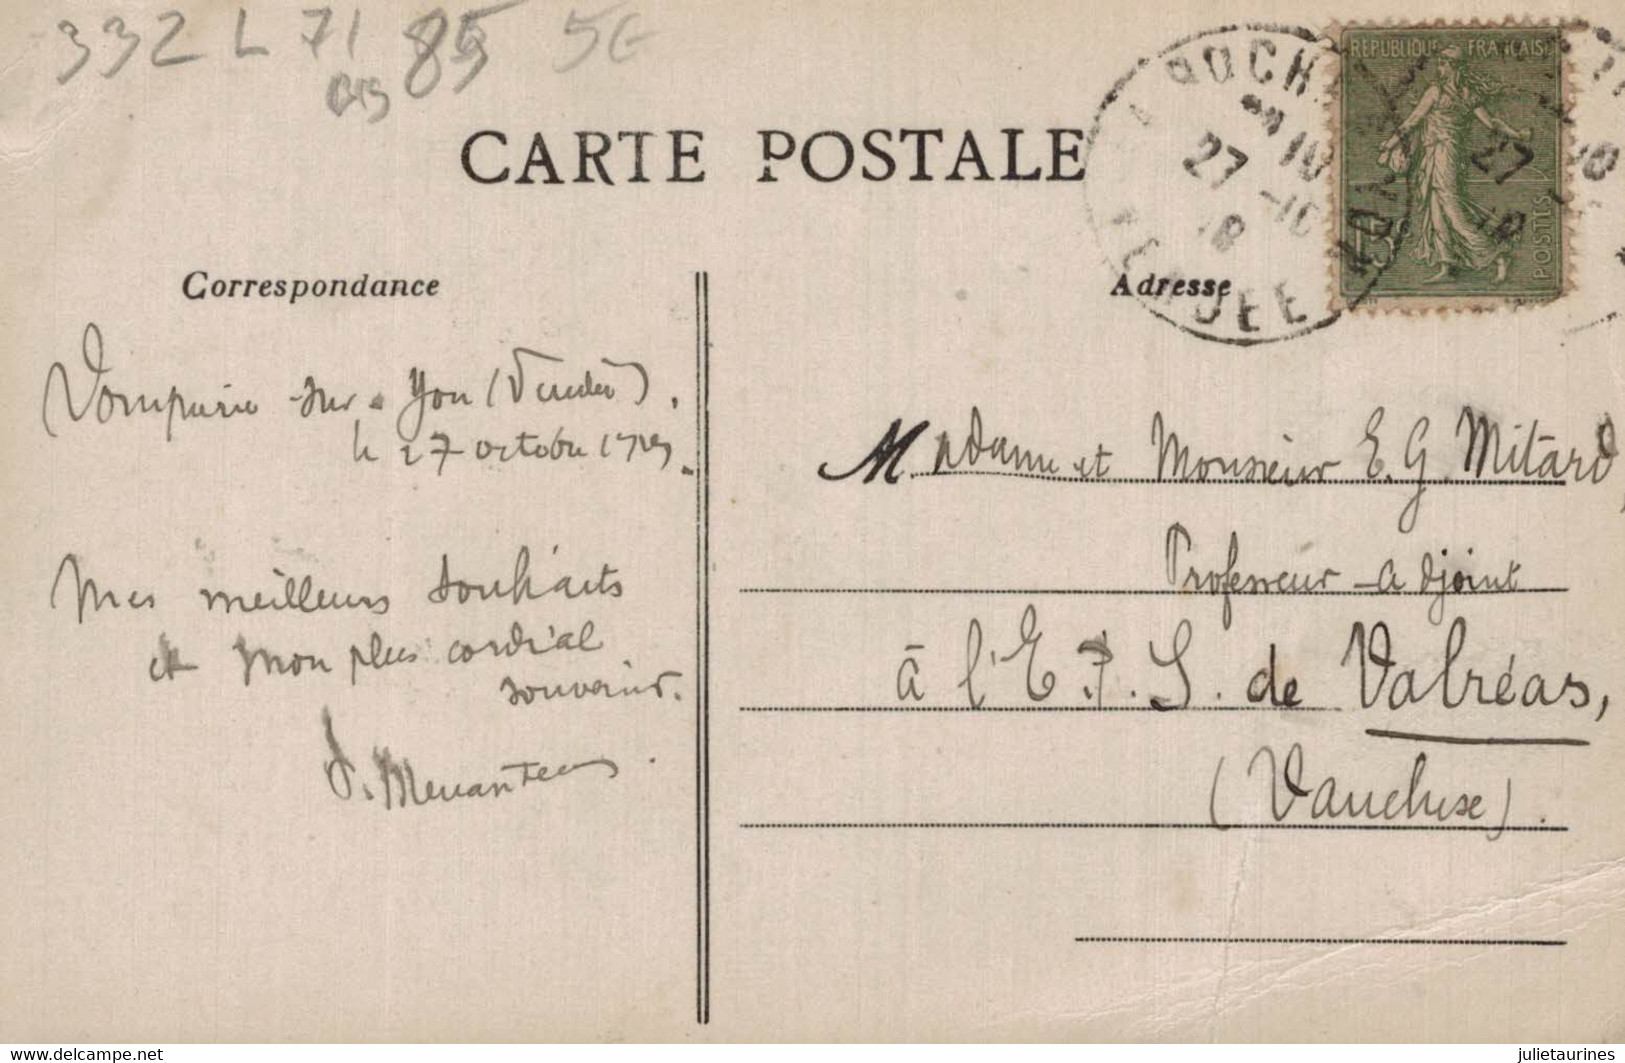 332 L 71 85 5E
Bis
CARTE POSTALE
REPUBLIQUE FRANÇAISE
15
POSTES
LA ROCHE
10
27 -10
18
VENDEE
27
Correspondance
Adresse
Dompierre sur-Yon (Vendée).
le 27 octobre
Mes meilleurs souhaits
et mon plus cordial
souvenir.
Menanteau.
Madame et Monsieur E. G. Mitard,
Professeur-adjoint
à l'E. P. S. de Valréas,
(Vaucluse).
www.delcampe.net
julietaurines